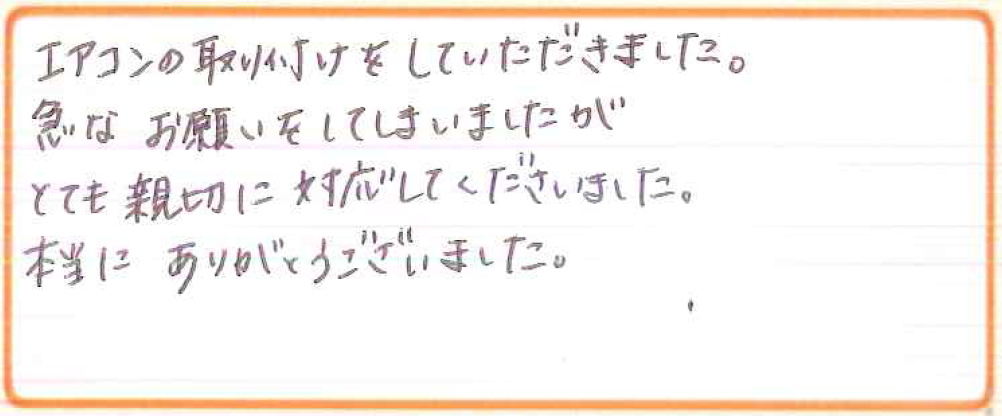 エアコンの取り付けをしていただきました。
急な お願いをしてしまいましたが
とても親切に 対応してくださいました。
本当に ありがとうございました。